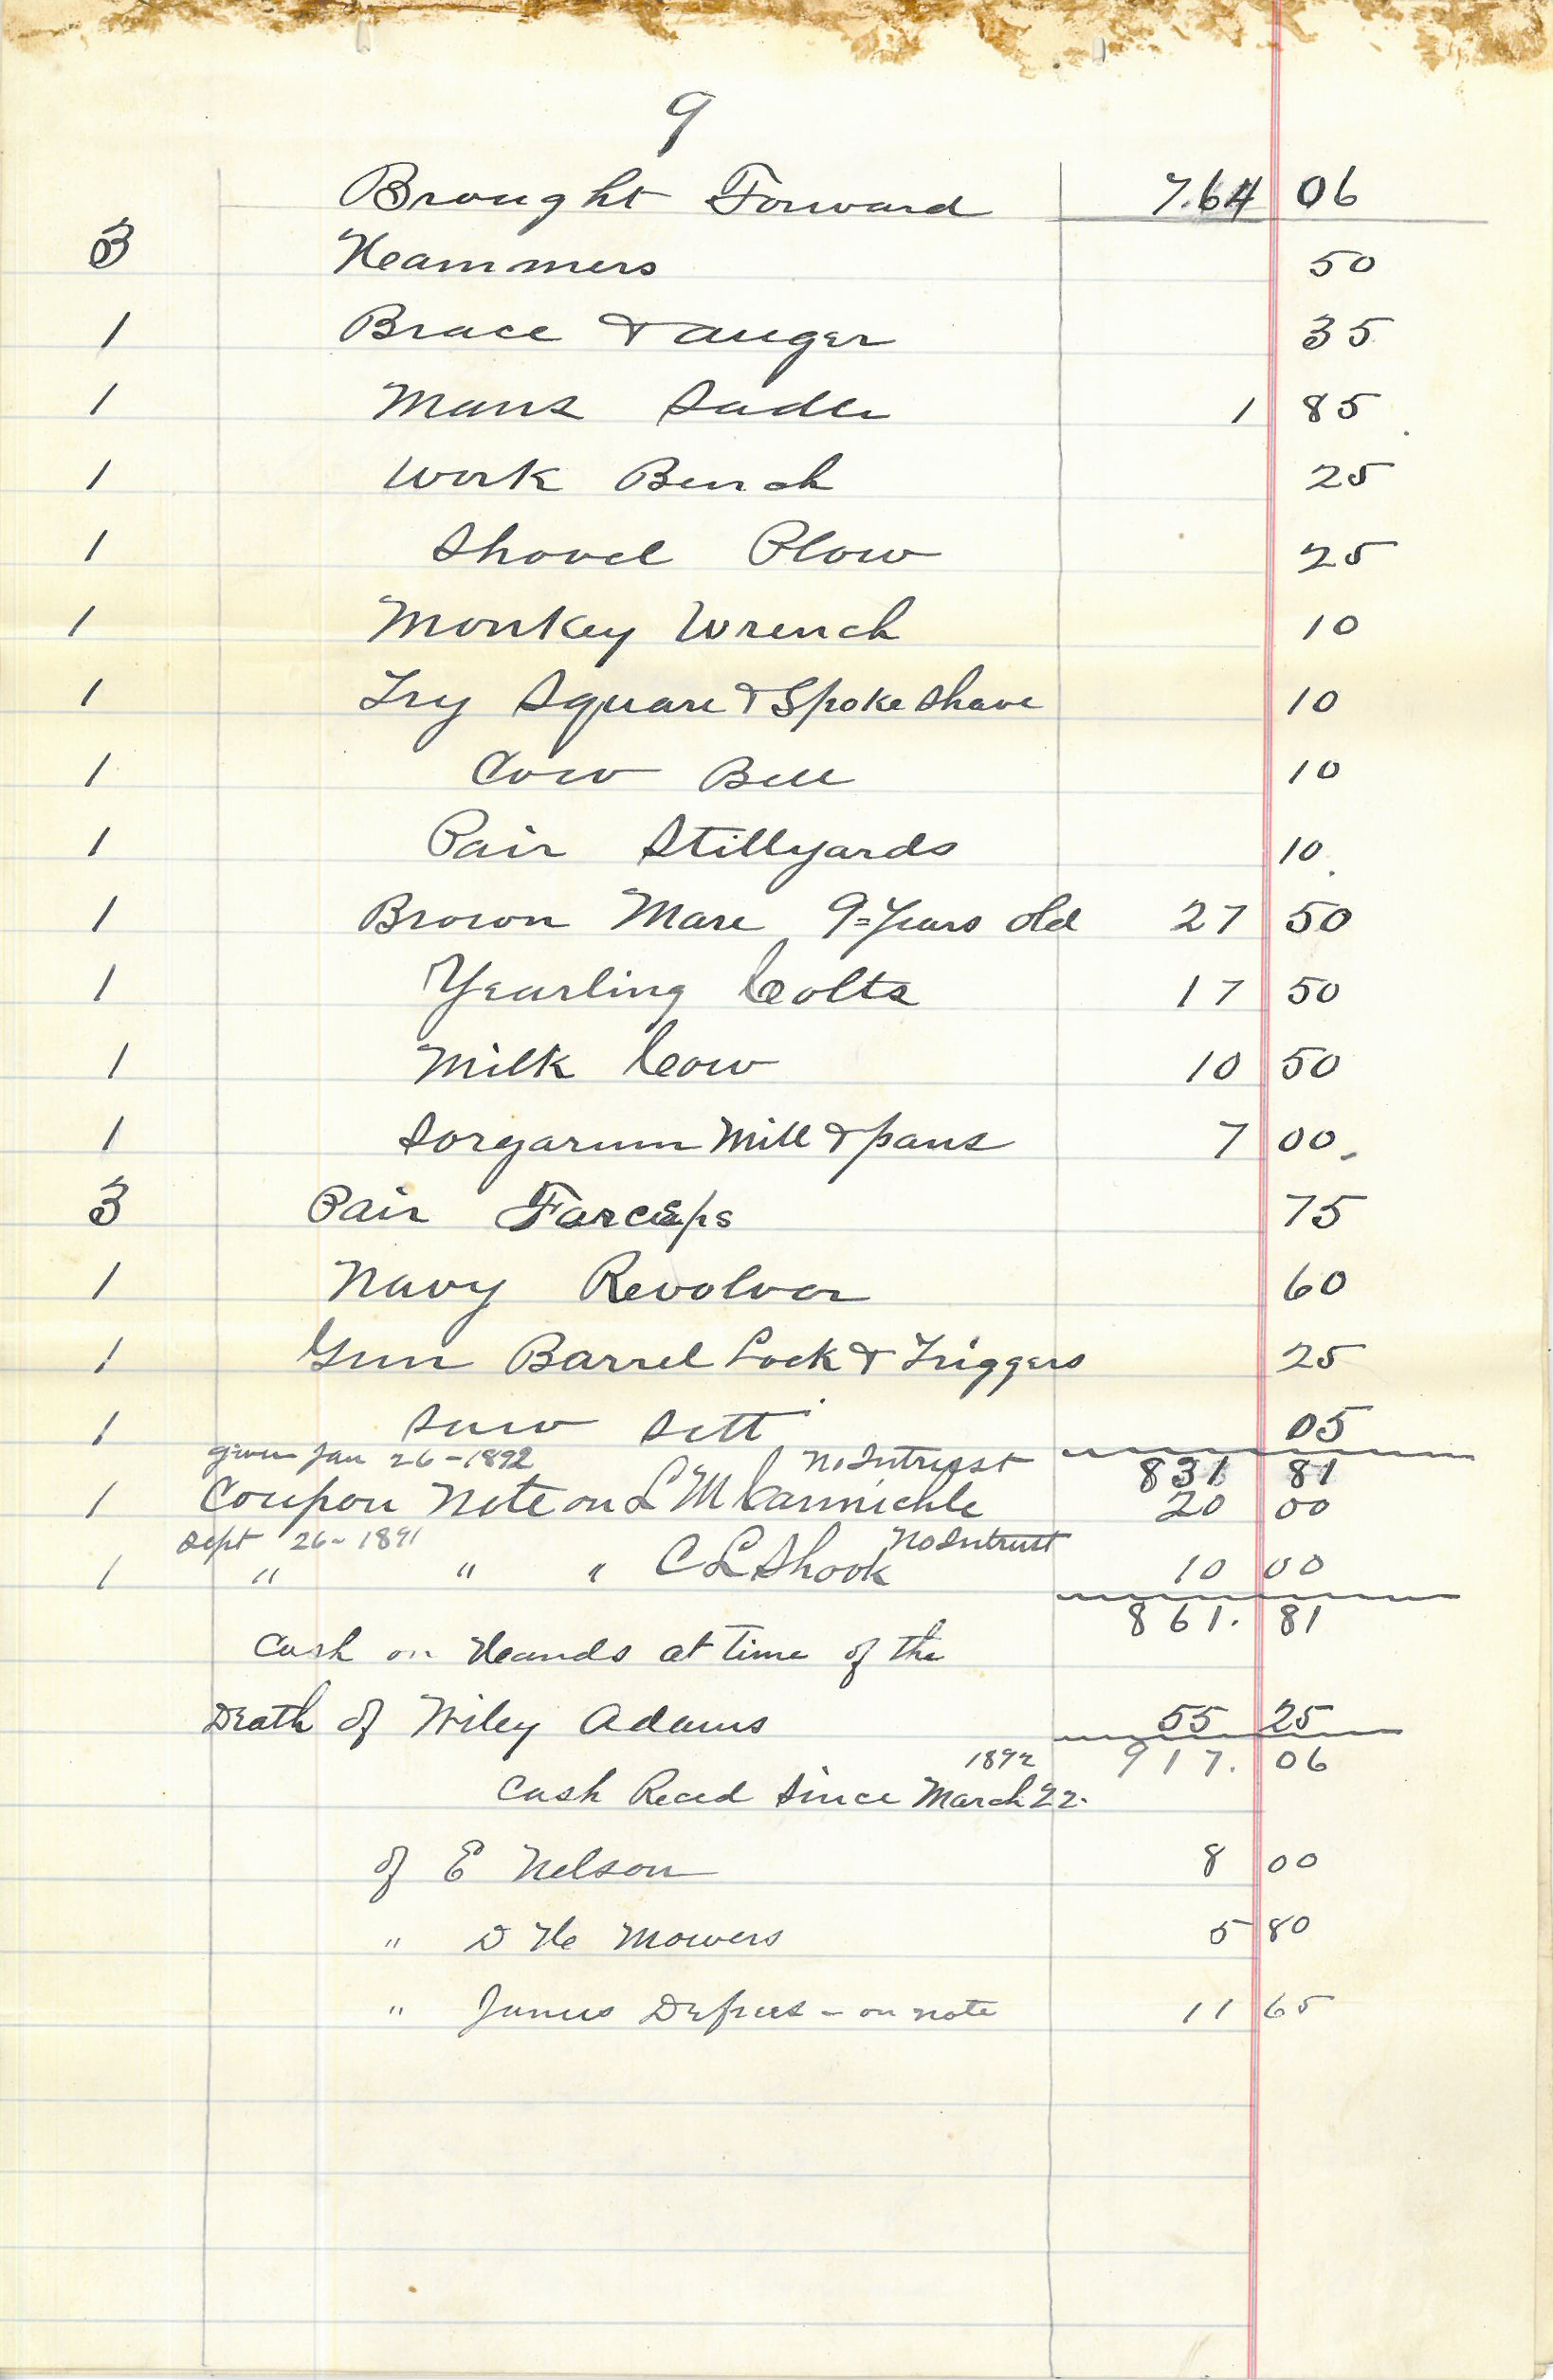 9
Brought Forward 7.64 06
3 Heammers 50
1 Brace & auger 35
1 Mans Sadle 1 85
1 Work Bench 25
1 Shovel Plow 25
1 Monkey Wrench 10
1 Try Square & Spoke Shave 10
1 Cow Bell 10
1 Pair Stillyards 10
1 Brown Mare 9=Years old 27 50
1 Yearling Colts 17 50
1 Milk Cow 10 50
1 Sorgarum Mill & pans 7 00
3 Pair Farceps 75
1 Navy Revolver 60
1 Gun Barrel Lock & Triggers 25
1 Saw Sett 05
given Jan 26-1892 No Intrest 831 81
1 Coupon Note on L M Carmichle 20 00
Sept 26-1891 No Intrust
1 " " " C L Shook 10 00
861. 81
Cash on Heands at time of the
Death of Wiley Adams 55 25
1892 917. 06
Cash Recd Since March 22.
of E Nelson 8 00
" D He Mowers 5 80
" James Defrees - on note 11 65